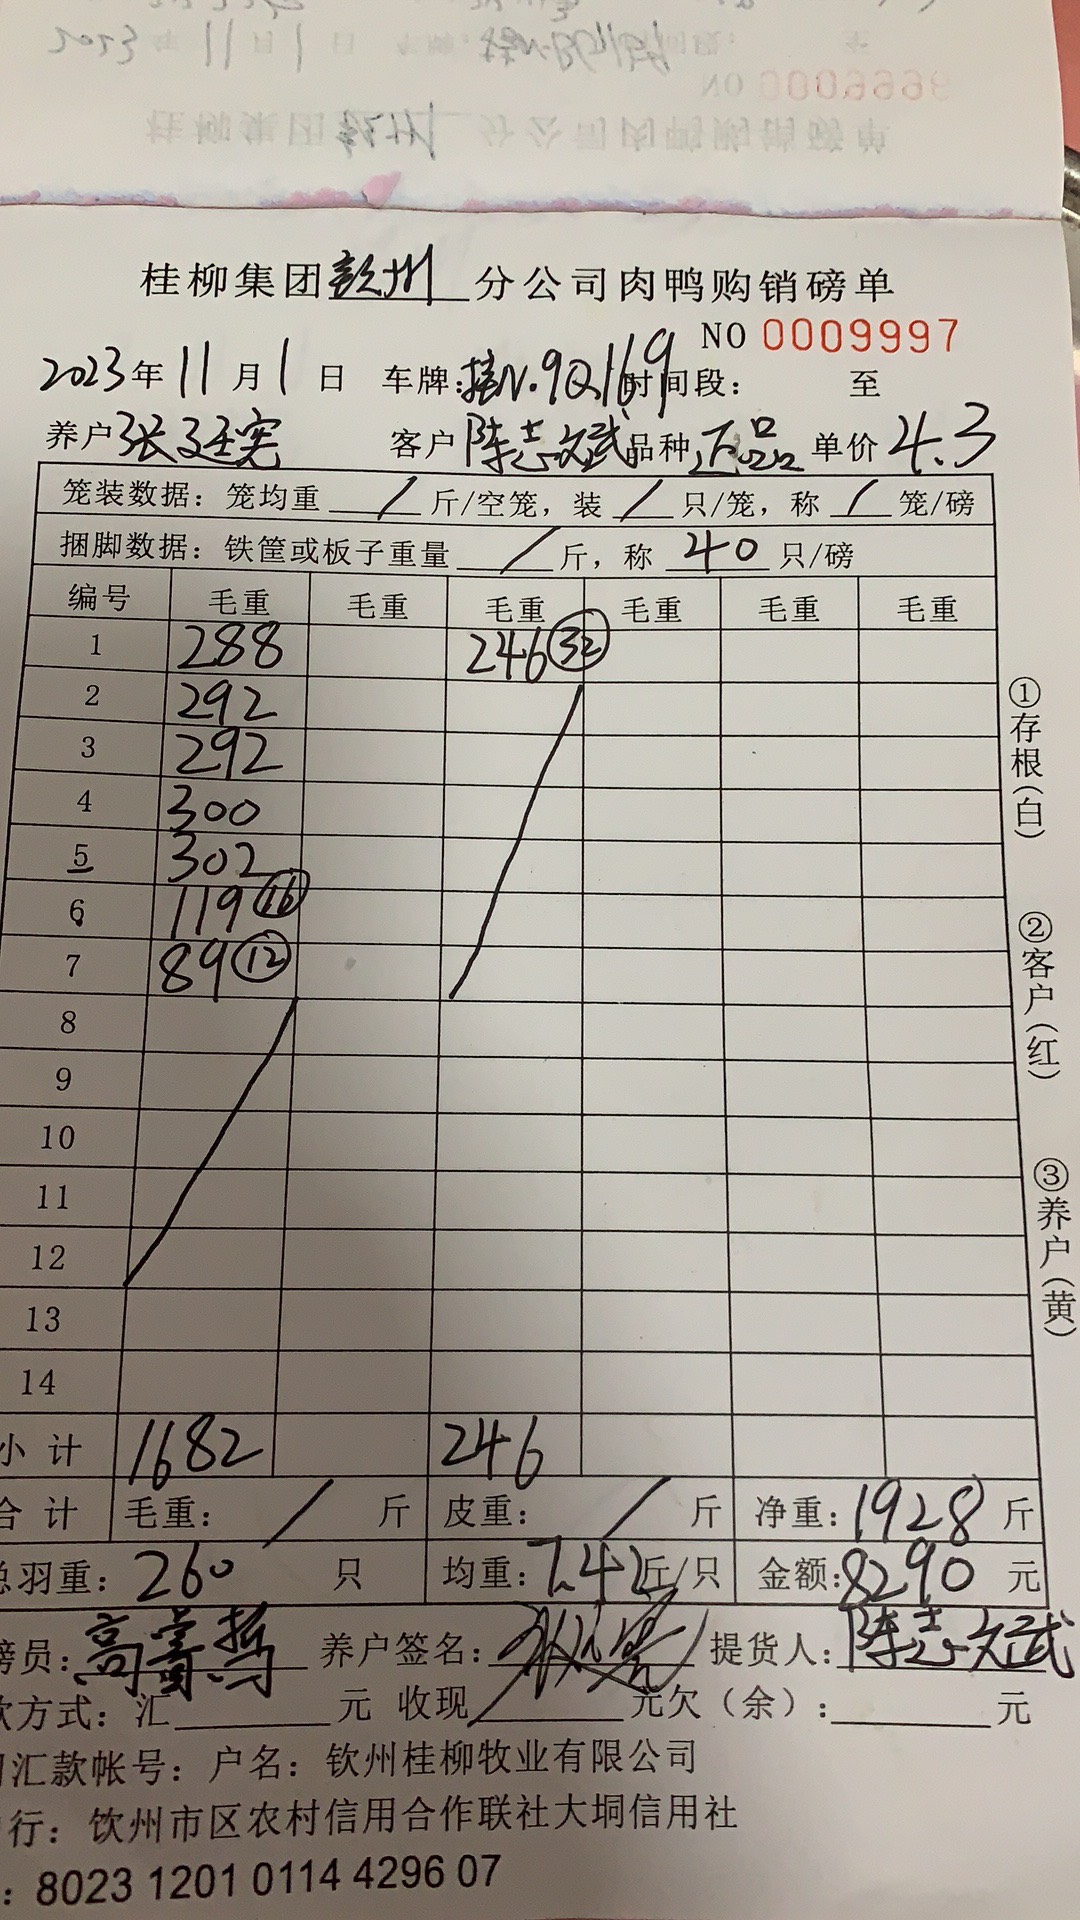 桂柳集团钦州分公司肉鸭购销磅单
NO 0009997
2023年11月1日 车牌:桂N.9Q169 时间段: 至
养户 张廷宪 客户 陈志斌 品种 正品 单价 4.3
笼装数据: 笼均重 / 斤/空笼, 装 / 只/笼, 称 / 笼/磅
捆脚数据: 铁筐或板子重量 / 斤, 称 40 只/磅
编号 毛重 毛重 毛重 毛重 毛重 毛重
1 288 246 (32)
2 292
3 292
4 300
5 302
6 119 (16)
7 89 (12)
8
9
10
11
12
13
14
小计 1682 246
合计 毛重: / 斤 皮重: / 斤 净重: 1928 斤
总羽重: 260 只 均重: 7.42 斤/只 金额: 8290 元
磅员: 高 养户签名: 提货人: 陈志斌
款方式: 汇 元 收现 元欠(余): 元
汇款帐号: 户名: 钦州桂柳牧业有限公司
行: 钦州市区农村信用合作联社大垌信用社
: 8023 1201 0114 4296 07
①存根(白)
②客户(红)
③养户(黄)